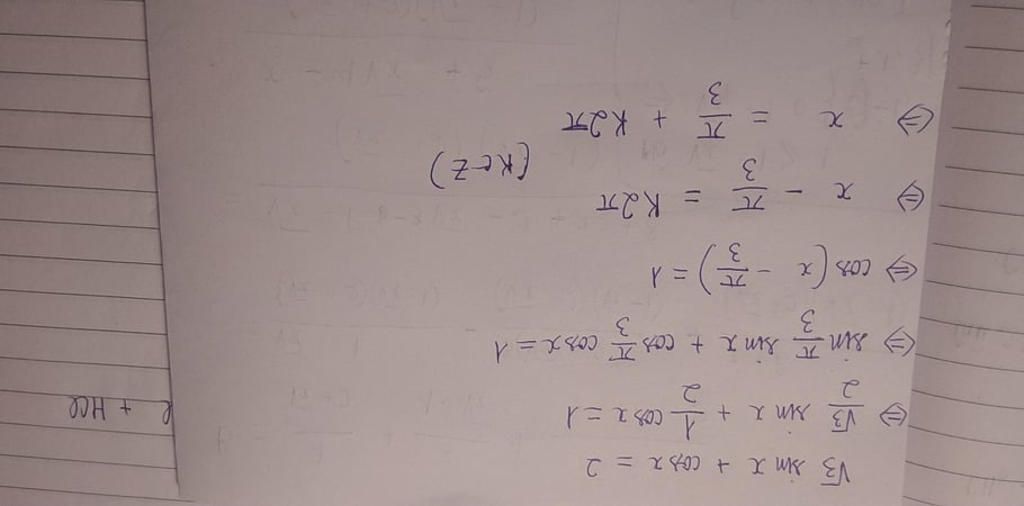 √3 sin x + cos x = 2
⇔ √3/2 sin x + 1/2 cos x = 1
⇔ sin π/3 sin x + cos π/3 cos x = 1
⇔ cos (x - π/3) = 1
⇔ x - π/3 = k2π
(k∈Z)
⇔ x = π/3 + k2π
+ HCl